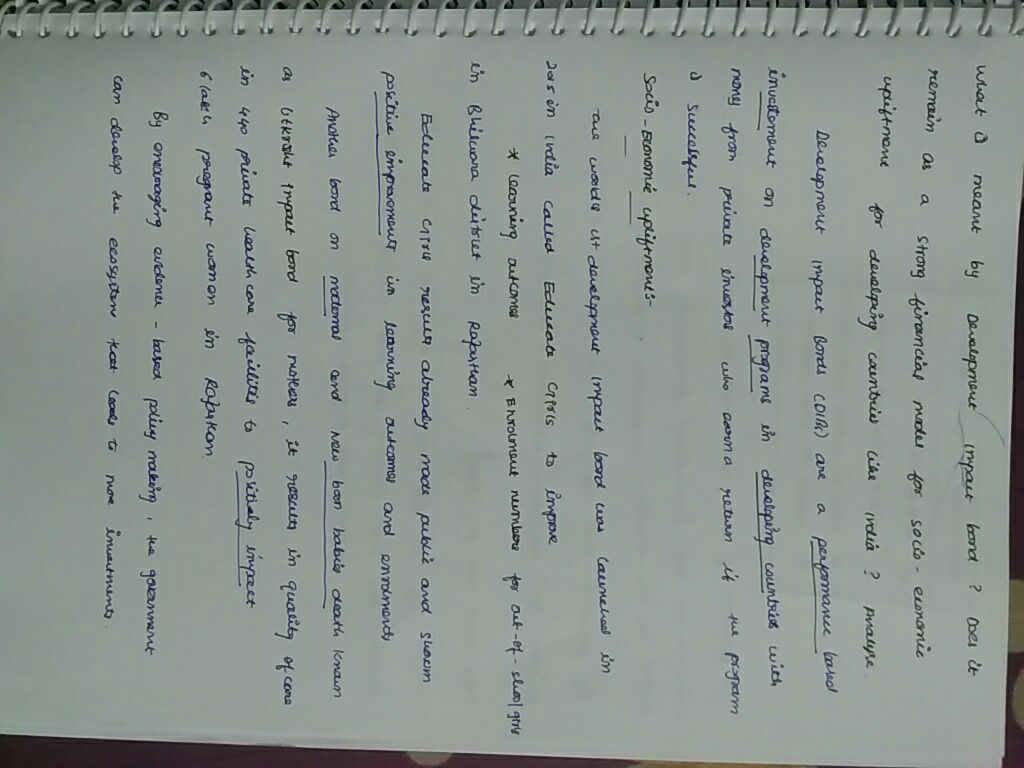 What is meant by Development Impact bond ? Does it
remain as a strong financial model for socio-economic
upliftment for developing countries like India ? Analyse.
Development impact Bonds (DIB) are a performance based
investment on development programs in developing countries with
money from private investors who earn a return if the program
is successful.
Socio-Economic upliftment:-
The world's 1st development impact bond was launched in
2015 in India called Educate Girls to improve
* learning outcomes * Enrolment numbers for out-of-school girls
in Bhilwara district in Rajasthan.
Educate Girls results already made public and shown
positive improvements in learning outcomes and enrolments.
Another bond on maternal and new born babies death known
as Utkrisht impact bond for mothers, it results in quality of care
in 440 private health care facilities to positively impact
6 lakh pregnant women in Rajasthan.
By encouraging evidence-based policy making, the government
can develop the ecosystem that leads to more investments.